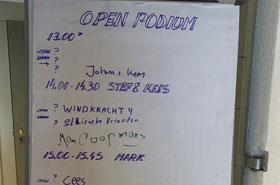 OPEN PODIUM
13.00"
?
?
→ ?
John + Kees
14.00 - 14.30 STEF & KEES
→ ? WINDKRACHT 4
→ ? etherische vrienden
15.00 - 15.45 MARK
→ ? Cees